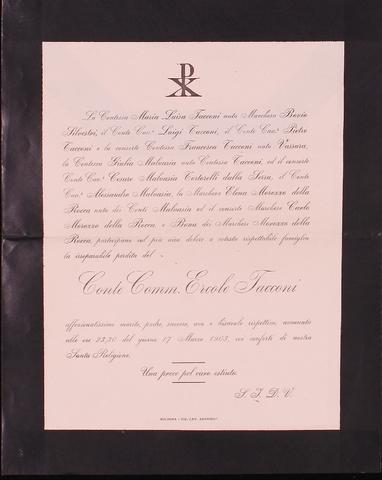 La Contessa Maria Luisa Tacconi nata Marchesa Bovio
Silvestri, il Conte Cav. Luigi Tacconi, il Conte Cav. Pietro
Tacconi e la consorte Contessa Francesca Tacconi nata Vassura,
la Contessa Giulia Malvasia nata Contessa Tacconi, ed il consorte
Conte Cav. Cesare Malvasia Tortorelli dalla Serra, il Conte
Cav. Alessandro Malvasia, la Marchesa Elena Morozzo della
Rocca nata dei Conti Malvasia ed il consorte Marchese Carlo
Morozzo della Rocca, e Bona dei Marchesi Morozzo della
Rocca, partecipano col più vivo dolore a cotesta rispettabile famiglia
la irreparabile perdita del
Conte Comm. Ercole Tacconi
affezionatissimo marito, padre, suocero, avo e bisavolo rispettivo, avvenuta
alle ore 23,30 del giorno 17 Marzo 1903, coi conforti di nostra
Santa Religione.
Una prece pel caro estinto.
S. T. D. V.
BOLOGNA